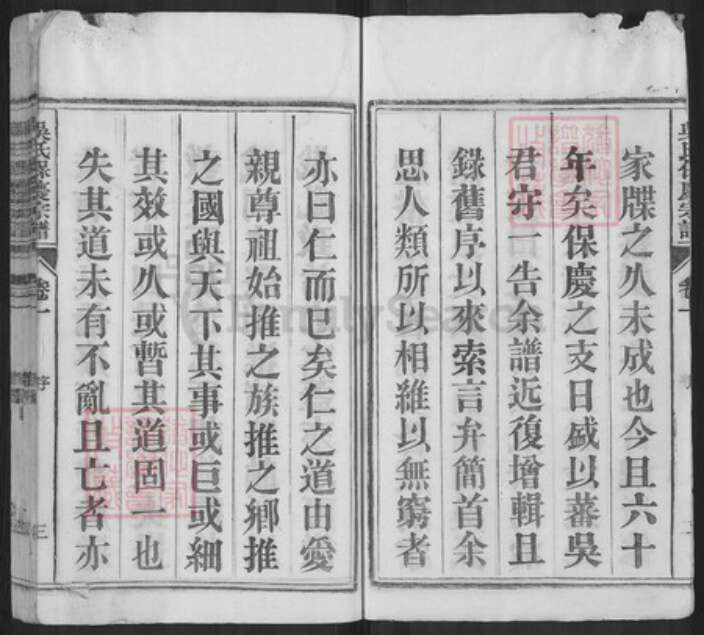 家牒之久未成也今且六十
年矣保慶之支日盛以蕃吳
君守一告余譜近復增輯且
錄舊序以來索言弁簡首余
思人類所以相維以無窮者
亦曰仁而已矣仁之道由愛
親尊祖始推之族推之鄉推
之國與天下其事或巨或細
其效或久或暫其道固一也
失其道未有不亂且亡者亦
吳氏保慶宗譜 卷一 序 三
FamilySearch